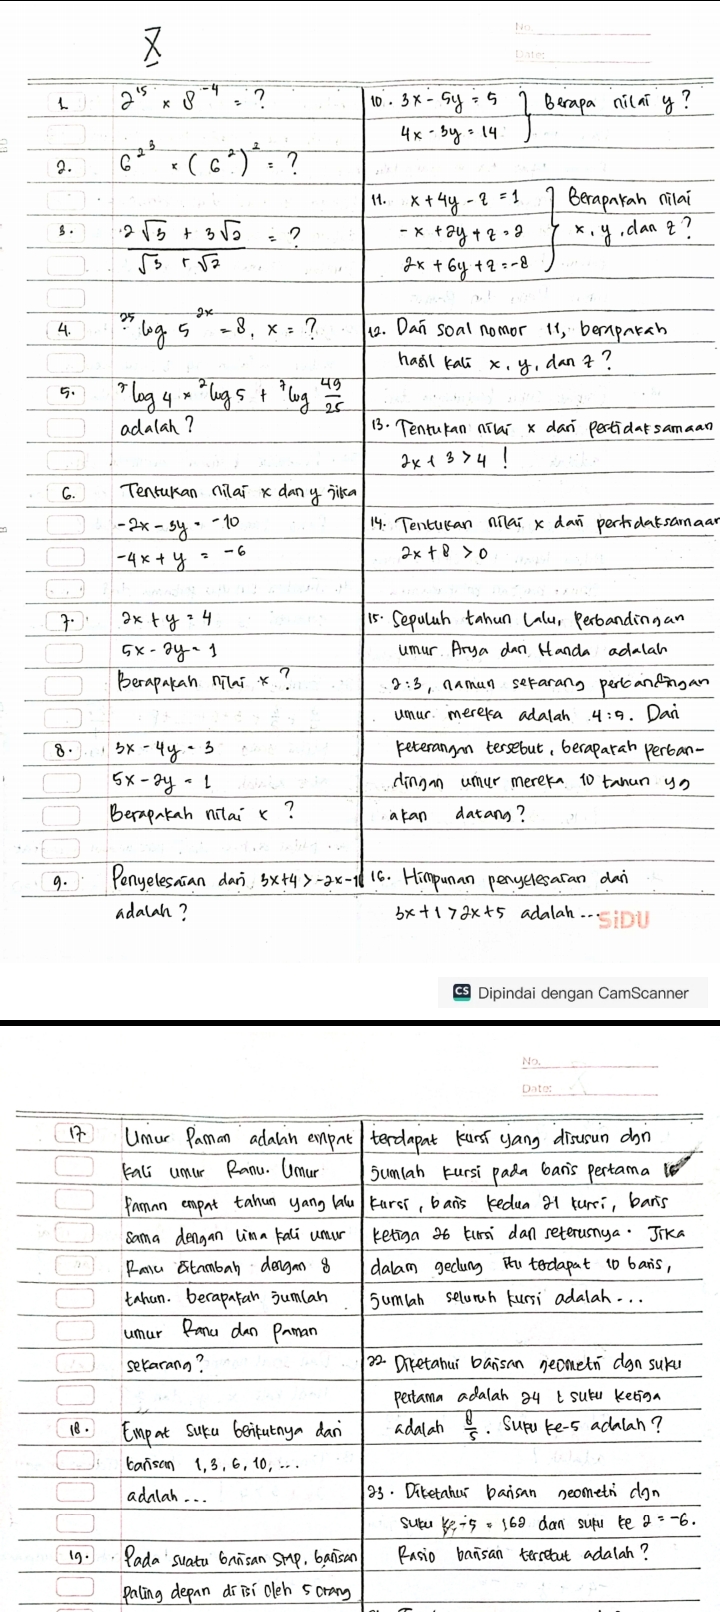 X
No.
Date:
1. 2^15 × 8^-4 = ?
2. 6^2^3 × (6^2)^2 = ?
3. 2√3 + 3√2 = ?
√3 + √2
4. ²⁵log 5^2x = 8, x = ?
5. ⁷log 4 × ²log 5 + ⁷log 49/25
adalah ?
6. Tentukan nilai x dan y jika
-2x - 3y = -10
-4x + y = -6
7. 2x + y = 4
5x - 2y = 1
Berapakah nilai x ?
8. 3x - 4y = 3
5x - 2y = 1
Berapakah nilai x ?
9. Penyelesaian dari 3x+4 > -2x-11
adalah ?
10. 3x - 5y = 5 } Berapa nilai y ?
4x - 3y = 14
11. x + 4y - z = 1 } Berapakah nilai
-x + 2y + z = 2 x, y, dan z ?
2x + 6y + z = -8
12. Dari soal nomor 11, berapakah
hasil kali x, y, dan z ?
13. Tentukan nilai x dari pertidaksamaan
2x + 3 > 4 !
14. Tentukan nilai x dari pertidaksamaan
2x + 8 > 0
15. Sepuluh tahun lalu, perbandingan
umur Arya dan Handa adalah
2:3, namun sekarang perbandingan
umur mereka adalah 4:5. Dari
keterangan tersebut, berapakah perban-
dingan umur mereka 10 tahun yg
akan datang ?
16. Himpunan penyelesaian dari
3x + 1 > 2x + 5 adalah ...
SiDU
CS Dipindai dengan CamScanner
No.
Date:
17. Umur Paman adalah empat
kali umur Ranu. Umur
Paman empat tahun yang lalu
sama dengan lima kali umur
Ranu ditambah dengan 8
tahun. berapakah jumlah
umur Ranu dan Paman
sekarang ?
18. Empat suku berikutnya dari
barisan 1, 3, 6, 10, ...
adalah ...
19. Pada suatu barisan SMP, barisan
paling depan di isi oleh 5 orang
terdapat kursi yang disusun dgn
jumlah kursi pada baris pertama 16
kursi, baris kedua 21 kursi, baris
ketiga 26 kursi dan seterusnya. Jika
dalam gedung itu terdapat 10 baris,
jumlah seluruh kursi adalah ...
22. Diketahui barisan geometri dgn suku
pertama adalah 24 & suku ketiga
adalah 8/5. Suku ke-5 adalah ?
23. Diketahui barisan geometri dgn
suku ke-5 = 162 dan suku ke 2 = -6.
Rasio barisan tersebut adalah ?